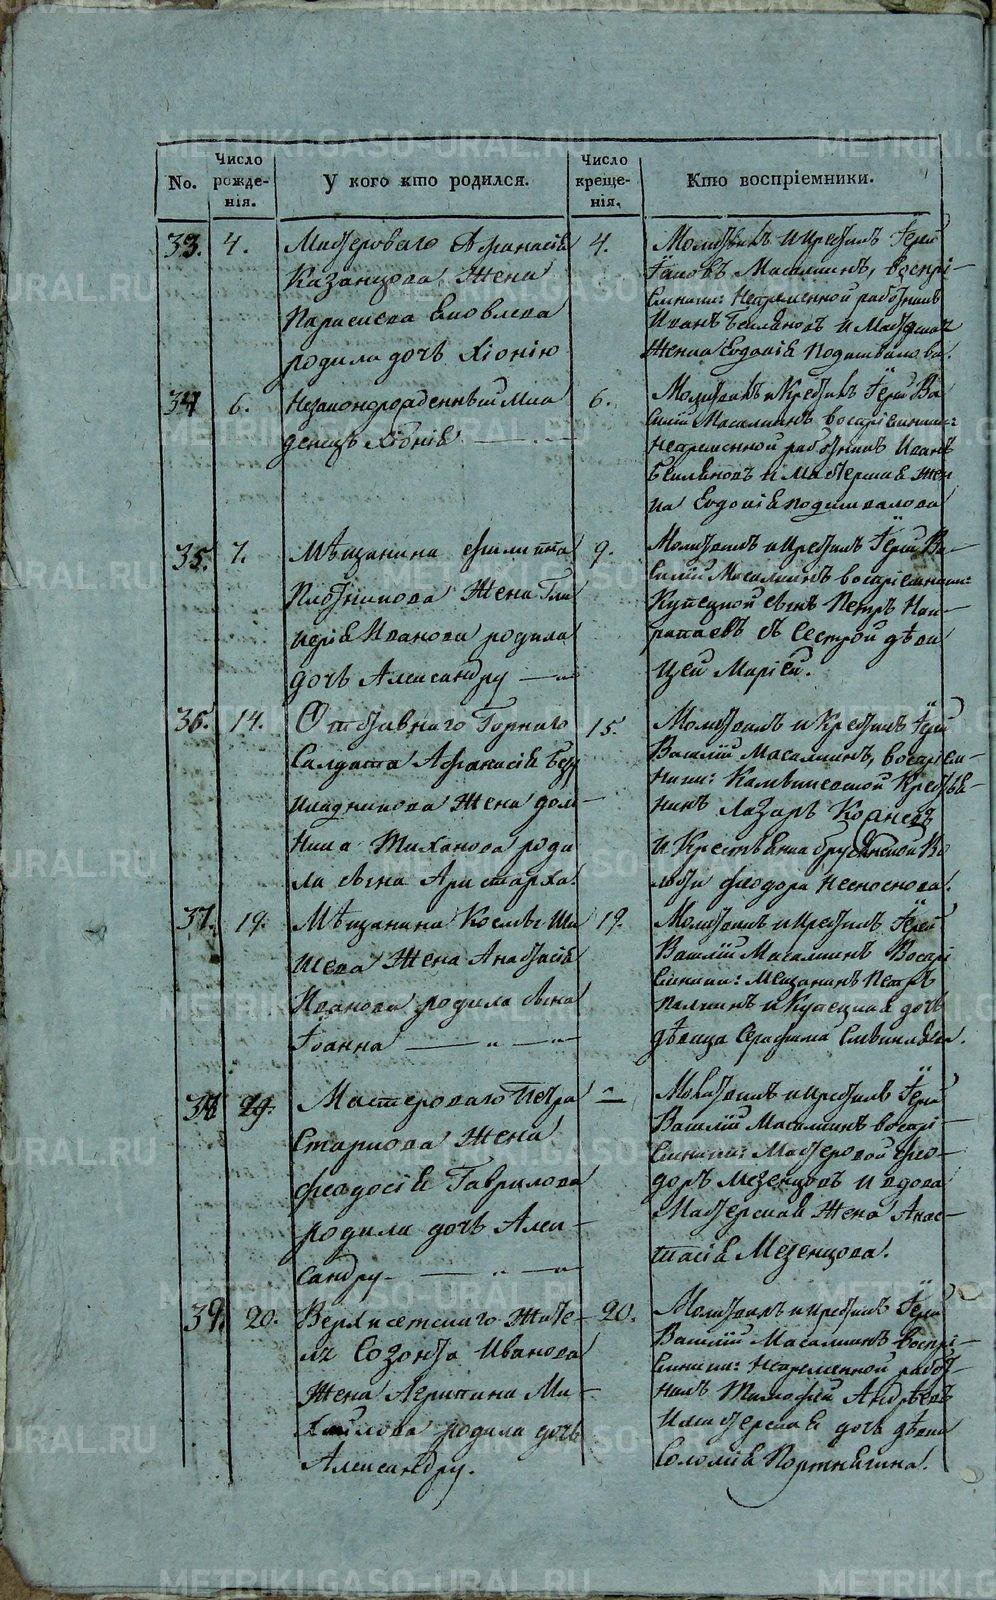 METRIKI.GASO-URAL.RU
No.
Число рожденія.
У кого кто родился.
Число крещенія.
Кто воспріемники.
33. 4.
Мастероваго Афанасія
Казанцова Жена
Параскева Яковлева
родила дочь Хіонію
4.
Молитвилъ и Крестилъ Іерей
Масалкинъ, воспрі-
емники: Непременной работникъ
Иванъ и Мастерская
Жена Евдокія Подшивалова.
34 6.
Незаконорожденный Мла
денецъ Хіонія
6.
Молитвилъ и Крестилъ Іерей Ва
силій Масалкинъ воспріемники:
Непременной работникъ Иванъ
и Мастерская Жен
на Евдокія Подшивалова
35. 7.
Мѣщанина Филиппа
Плотникова Жена Гли
керія Иванова родила
дочь Александру
9.
Молитвилъ и Крестилъ Іерей Ва-
силій Масалкинъ воспріемники:
Купецкой сынъ Петръ
съ Сестрой дѣви
цей Маріей.
36. 14.
Отставнаго Горнаго
Салдата Афанасія
Жена дом-
ника Тиханова роди
ла сына Аристарха.
15.
Молитвилъ и Крестилъ Іерей
Василій Масалкинъ, воспріем-
ники: Крестья-
нинъ Лазарь
и Крестьянка Во
лости Феодора Несноснова.
37. 19.
Мѣщанина Космы Ши
шева Жена Анастасія
Иванова родила сына
Іоанна
19.
Молитвилъ и Крестилъ Іерей
Василій Масалкинъ Воспрі
емники: Мещанинъ Петръ
и Купецкая дочь
дѣвица Серафима
38 29.
Мастероваго Петра
Старкова Жена
Феодосія Гаврилова
родила дочь Алек-
сандру
Молитвилъ и Крестилъ Іерей
Василій Масалкинъ воспрі-
емники: Мастеровой Фео-
доръ Мезенцовъ и вдова
Мастерская Жена Анас-
тасія Мезенцова.
39. 20.
Верхисетскаго Жите-
ля Созонта Иванова
Жена Агрипина Ми-
хайлова родила дочь
Александру.
20.
Молитвилъ и Крестилъ Іерей
Василій Масалкинъ Воспрі-
емники: Непременной работ-
никъ Тимофей Андрѣевъ
и мастерская дочь дѣвица
Соломія Портнягина.